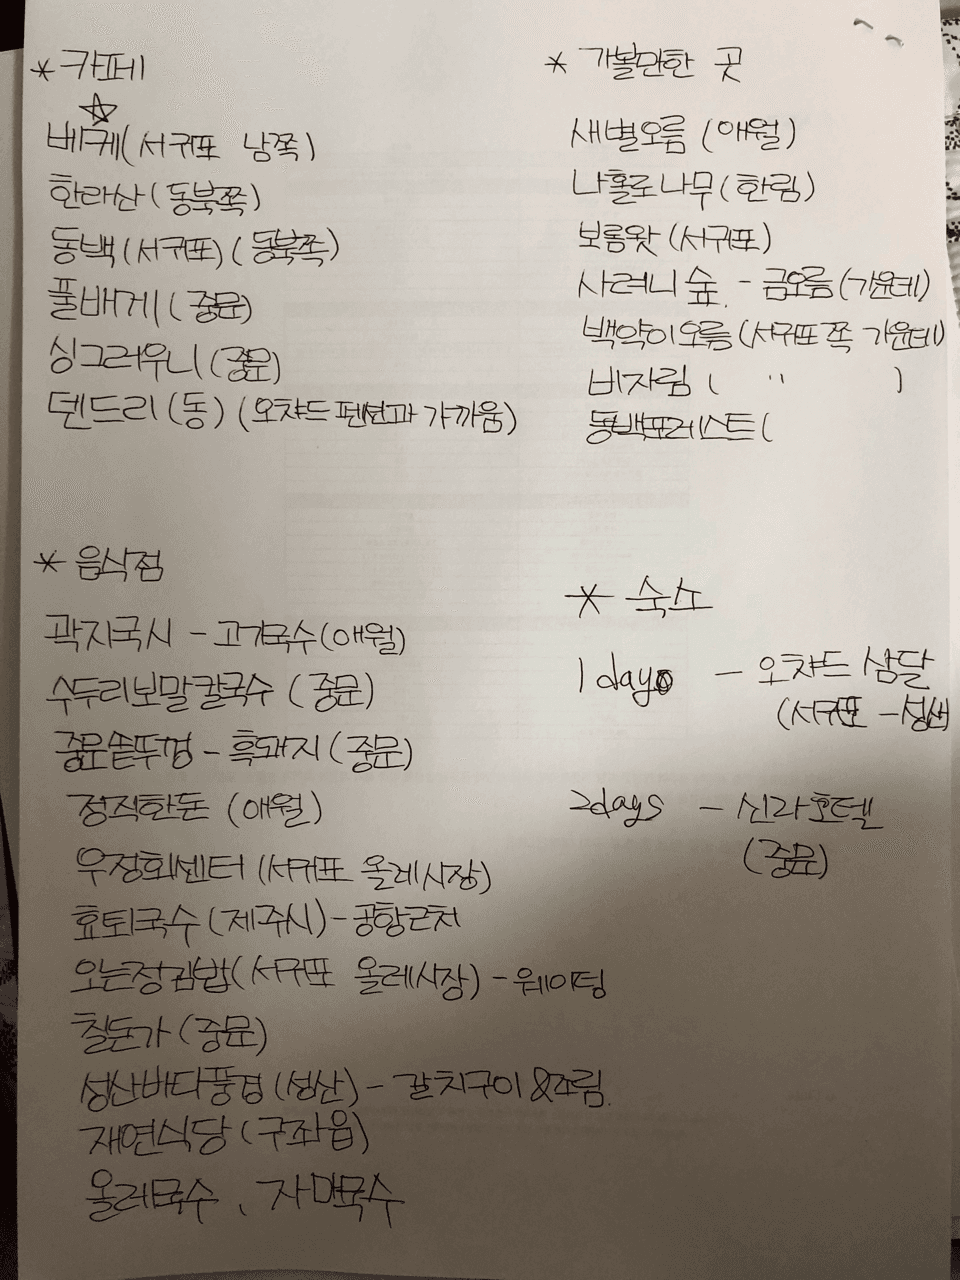 * 카페
☆
베케(서귀포 남쪽)
한라산(동북쪽)
동백(서귀포)(동북쪽)
풀베게(중문)
싱그러우니(중문)
덴드리(동)(오챠드 펜션과 가까움)
* 가볼만한 곳
새별오름(애월)
나홀로나무(한림)
보롬왓(서귀포)
사려니숲. - 금오름(가운데)
백약이오름(서귀포쪽 가운데)
비자림( " )
동백포레스트(
* 음식점
곽지국시 - 고기국수(애월)
수두리보말칼국수(중문)
중문솥뚜껑 - 흑돼지(중문)
정직한돈(애월)
우정회센터(서귀포 올레시장)
효퇴국수(제주시) - 공항근처
오는정김밥(서귀포 올레시장) - 웨이팅
칠돈가(중문)
성산바다풍경(성산) - 갈치구이&조림.
재연식당(구좌읍)
올레국수, 자매국수
* 숙소
1day - 오챠드 삼달
(서귀포 - 성산
2days - 신라호텔
(중문)